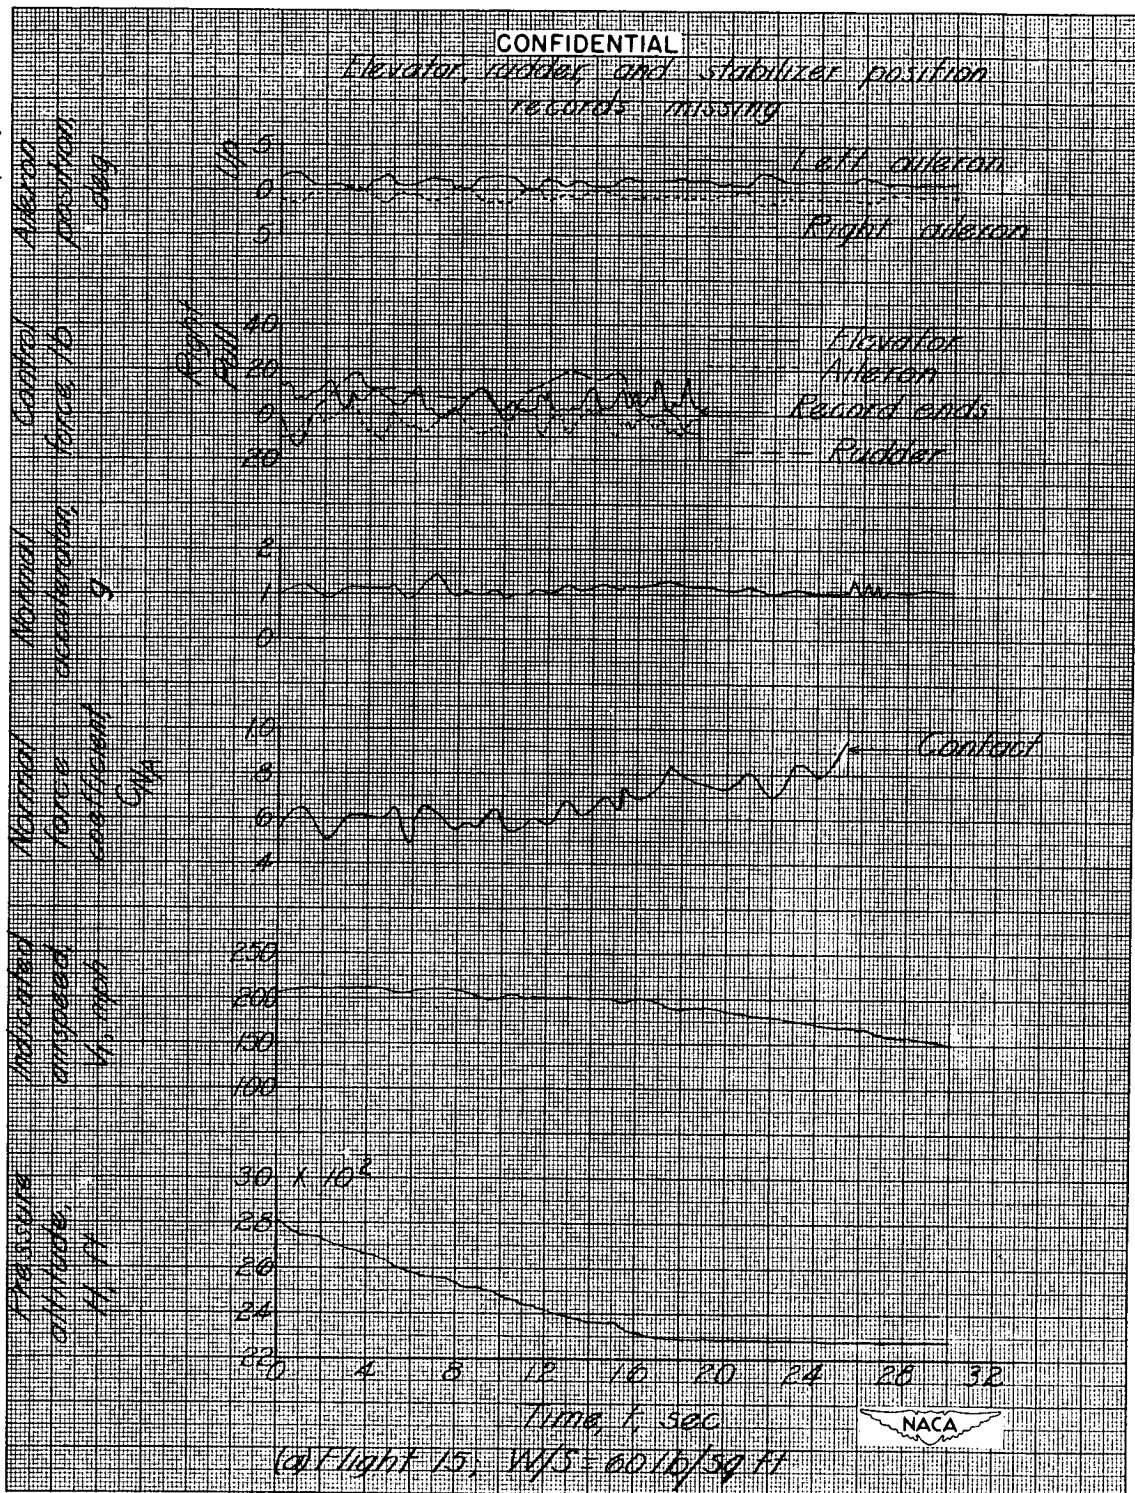 CONFIDENTIAL
Elevator, rudder, and stabilizer position
records missing
Aileron
position,
deg
Up
5
0
5
Left aileron
Right aileron
Control
force, lb
Right
Pull
40
20
0
20
Elevator
Aileron
Record ends
Rudder
Normal
acceleration,
g
2
1
0
Normal
force
coefficient,
C_NA
1.0
.8
.6
.4
Contact
Indicated
airspeed,
Vi, mph
250
200
150
100
Pressure
altitude,
H, ft
30 x 10²
28
26
24
22
0 4 8 12 16 20 24 28 32
Time, t, sec
NACA
(a) Flight 15; W/S = 60 lb/sq ft